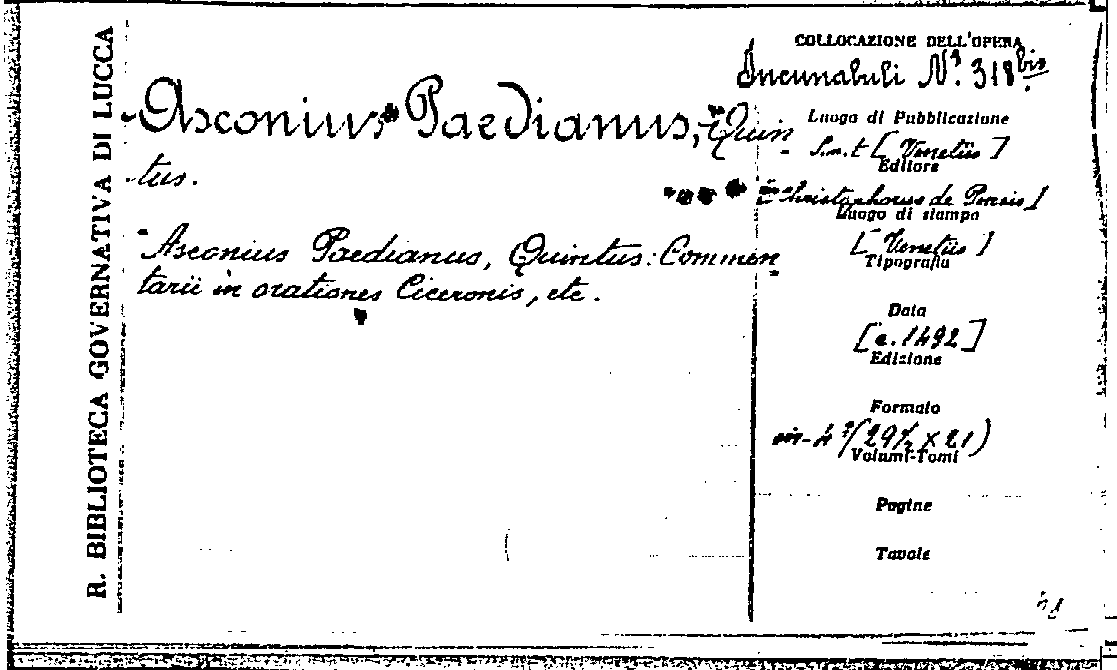 R. BIBLIOTECA GOVERNATIVA DI LUCCA
Asconius Paedianus, Quin
tus.
Asconius Paedianus, Quintus: Commen
tarii in orationes Ciceronis, etc.
COLLOCAZIONE DELL'OPERA
Incunabuli Nº. 318 bis
Luogo di Pubblicazione
S.n.t. [Venetiis]
Editore
[Christophorus de Pensis]
Luogo di stampa
[Venetiis]
Tipografia
Data
[c. 1492]
Edizione
Formato
in-4º (29½ × 21)
Volumi-Tomi
Pagine
Tavole